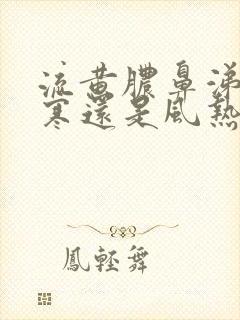 流黃膿鼻涕
寒還是風熱
鳳輕舞